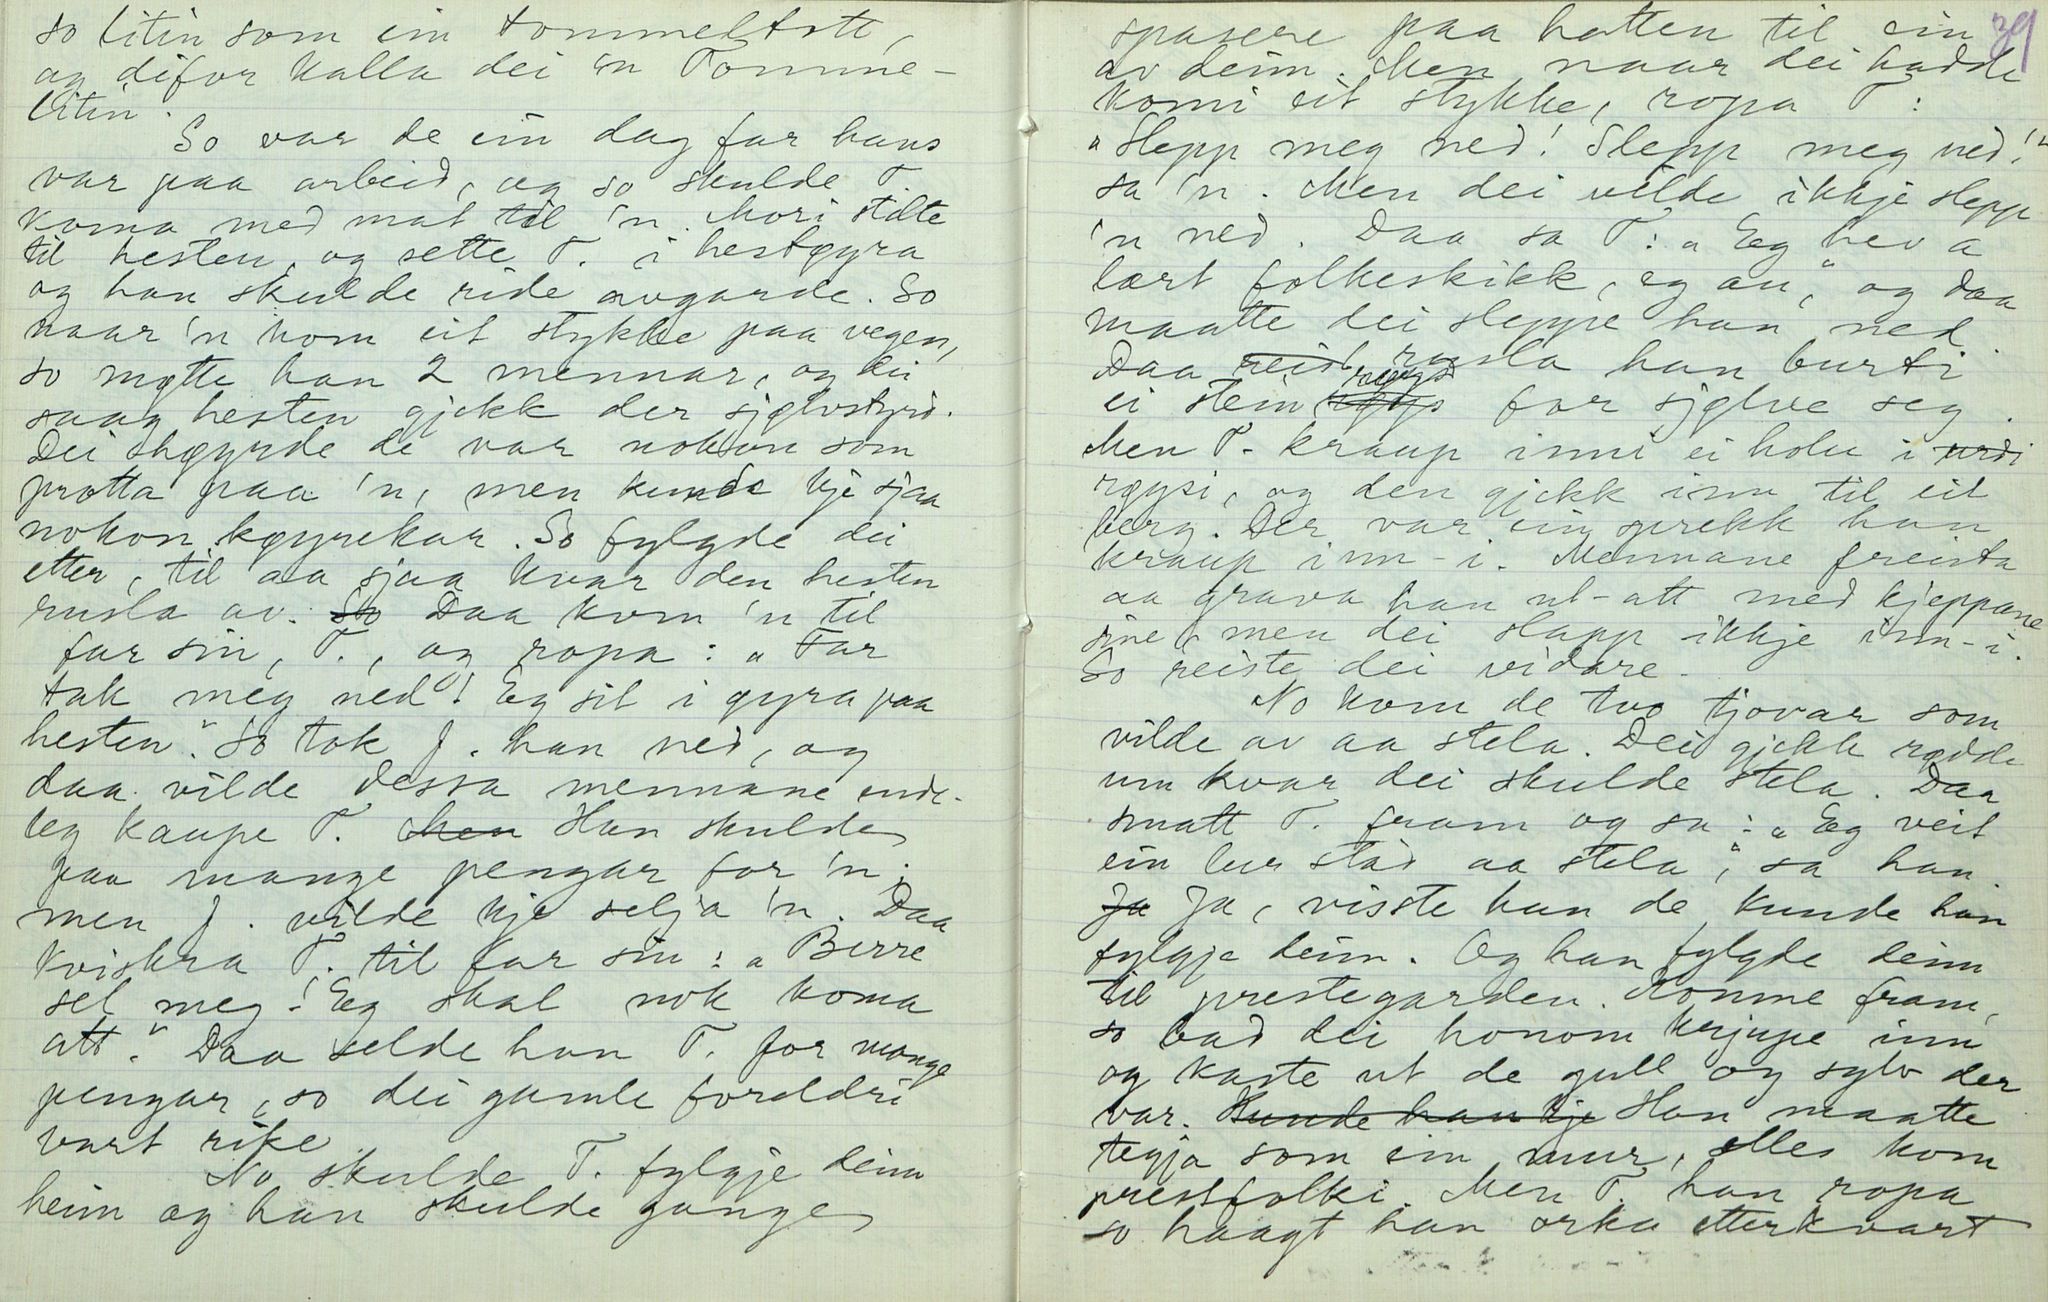 so litin som ein tommeltott,
og difor kalla dei 'n Tomme-
litin.
So var de ein dag far hans
var paa arbeid, og so skulde T.
koma med mat til 'n. Mori stelte
til hesten, og sette T. i hestøyra
og han skulde ride avgarde. So
naar 'n kom eit stykke paa vegen,
so møtte han 2 mennar, og dei
saag hesten gjekk der sjølvstyrd.
Dei skøynde de var nokon som
protta paa 'n, men kunde kje sjaa
nokon køyrekar. So fylgde dei
etter, til aa sjaa kvar den hesten
rusla av. So Daa kom 'n til
far sin, T., og ropa: "Far
tak meg ned! Eg sit i øyra paa
hesten". So tok J. han ned, og
daa vilde dessa mennane ende-
leg kaupe T. Men Han skulde
faa mange pengar for 'n,
men J. vilde kje selja 'n. Daa
kviskra T. til far sin: "Berre
sel meg! Eg skal nok koma
att." Daa selde han T. for mange
pengar, so dei gamle foreldri
vart rike.
No skulde T. fylgje deim
heim og han skulde gange
39
spasere paa hatten til ein
av deim. Men naar dei hadde
komi eit stykke, ropa T:
"Slepp meg ned! Slepp meg ned!"
sa 'n. Men dei vilde ikkje slepp
'n ned. Daa sa T: "Eg hev a
lært folkeskikk, eg au", og daa
maatte dei sleppe han ned.
Daa reist rusla han burti
ei steinrøys røys for sjølve seg.
Men T. kraup inni ei hole i urdi
røysi, og den gjekk inn til eit
berg. Der var ein sprekk han
kraup inn-i. Mennane freista
aa grava han ut-att med kjeppane
sine, men dei slapp ikkje inn-i.
So reiste dei vidare.
No kom de two tjovar som
vilde av aa stela. Dei gjekk rødde
um kvar dei skulde stela. Daa
smatt T. fram og sa: "Eg veit
ein lur stad aa stela", sa han.
Ja Ja, visste han de kunde han
fylgje deim. Og han fylgde deim
til prestegarden. Komne fram,
so bad dei honom krjupe inn
og kaste ut de gull og sylv der
var. Kunde han kje Han maatte
tegja som ein mur, elles kom
prestfolki. Men T. han ropa
so høagt han orka etterkvart